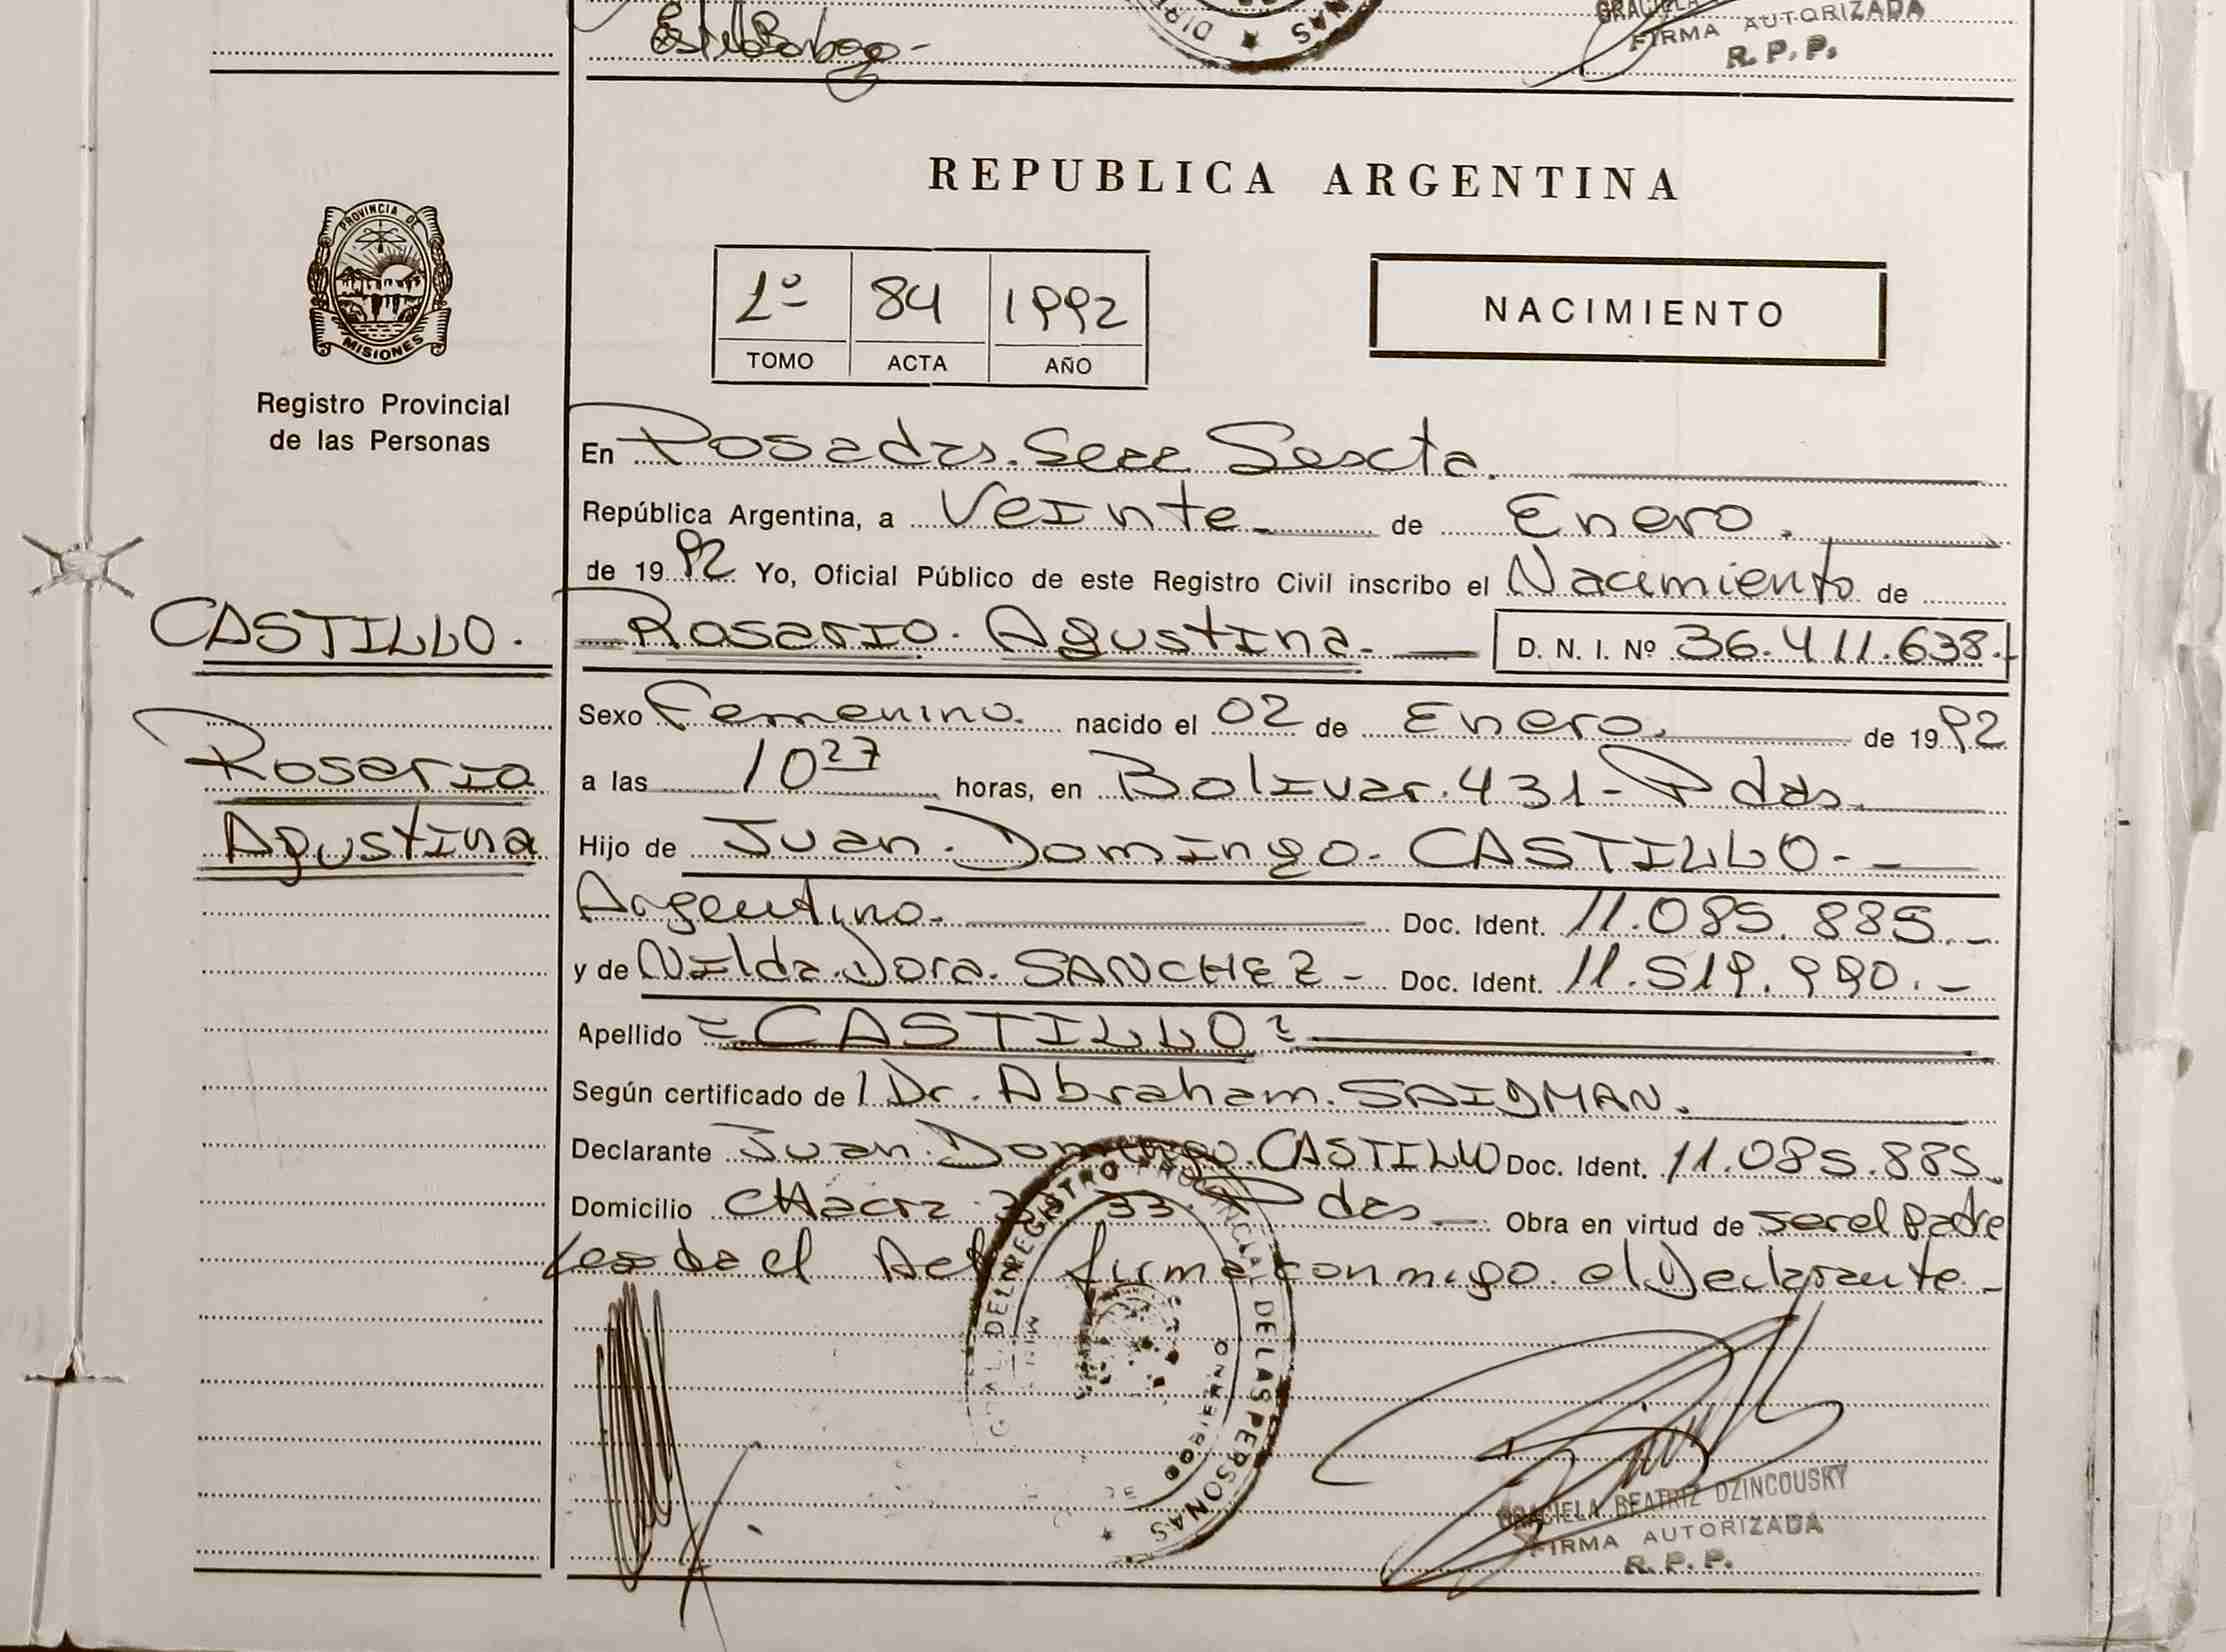 Estela Barboza-
DIRE
NAS
GRACIELA
FIRMA AUTORIZADA
R. P. P.
REPUBLICA ARGENTINA
PROVINCIA DE
MISIONES
Registro Provincial
de las Personas
1º 84 1992
TOMO ACTA AÑO
NACIMIENTO
En Posadas. Secc Sexta.
República Argentina, a Veinte de Enero.
de 1992 Yo, Oficial Público de este Registro Civil inscribo el Nacimiento de
CASTILLO.
Rosario. Agustina. D. N. I. Nº 36.411.638.
Sexo Femenino. nacido el 02 de Enero. de 1992
Rosario
Agustina
a las 10 27 horas, en Bolivar. 431- Pdas.
Hijo de Juan. Domingo. CASTILLO.-
Argentino. Doc. Ident. 11.085.885.-
y de Nilda. Dora. SANCHEZ - Doc. Ident. 11.519.990.-
Apellido = CASTILLO =
Según certificado del Dr. Abraham. SAIDMAN.
Declarante Juan. Domingo. CASTILLO Doc. Ident. 11.085.885.
Domicilio Chacra 33. Pdas Obra en virtud de ser el Padre
Leida el Acta firma conmigo el Declarante.-
GRAL DEL REGISTRO PROVINCIAL DE LAS PERSONAS
MIN DE GOBIERNO
GRACIELA BEATRIZ DZINCOUSKY
FIRMA AUTORIZADA
R. P. P.